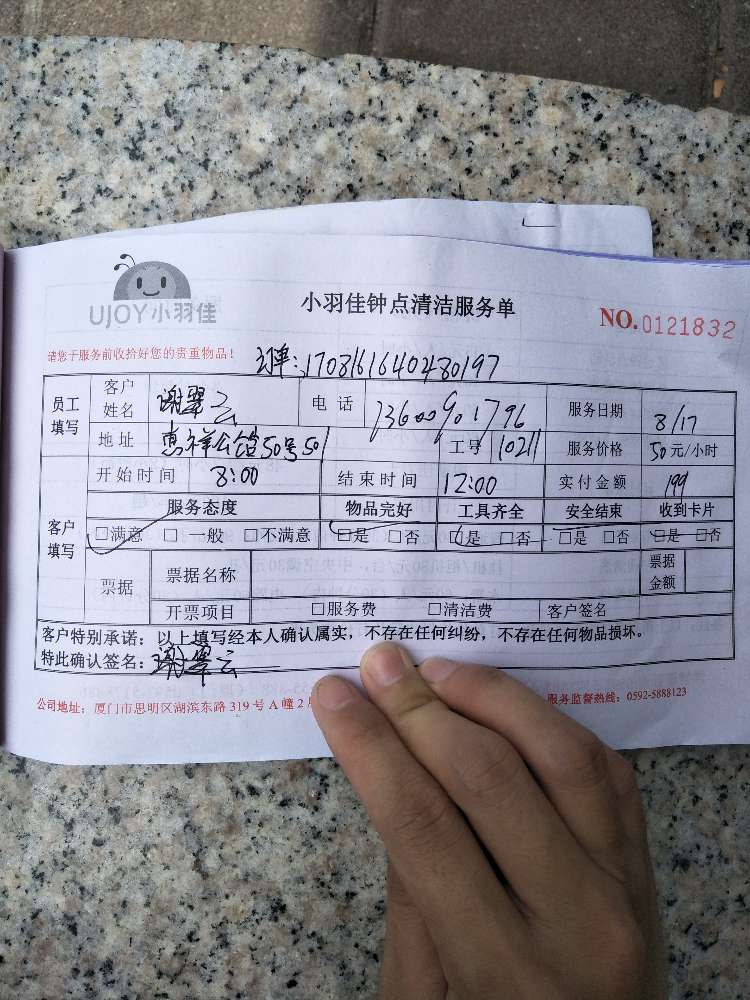 UJOY小羽佳
小羽佳钟点清洁服务单
NO.0121832
请您于服务前收拾好您的贵重物品！
订单：17081616402480197
员工填写 客户姓名 谢翠云 电话 13600901796 服务日期 8/17
地址 惠祥公馆50号501 工号 10211 服务价格 50元/小时
客户填写 开始时间 8:00 结束时间 12:00 实付金额 199
服务态度 物品完好 工具齐全 安全结束 收到卡片
□满意 □一般 □不满意 □是 □否 □是 □否 □是 □否 □是 □否
票据 票据名称 票据金额
开票项目 □服务费 □清洁费 客户签名
客户特别承诺：以上填写经本人确认属实，不存在任何纠纷，不存在任何物品损坏。
特此确认签名：谢翠云
公司地址：厦门市思明区湖滨东路319号A幢2 服务监督热线：0592-5888123